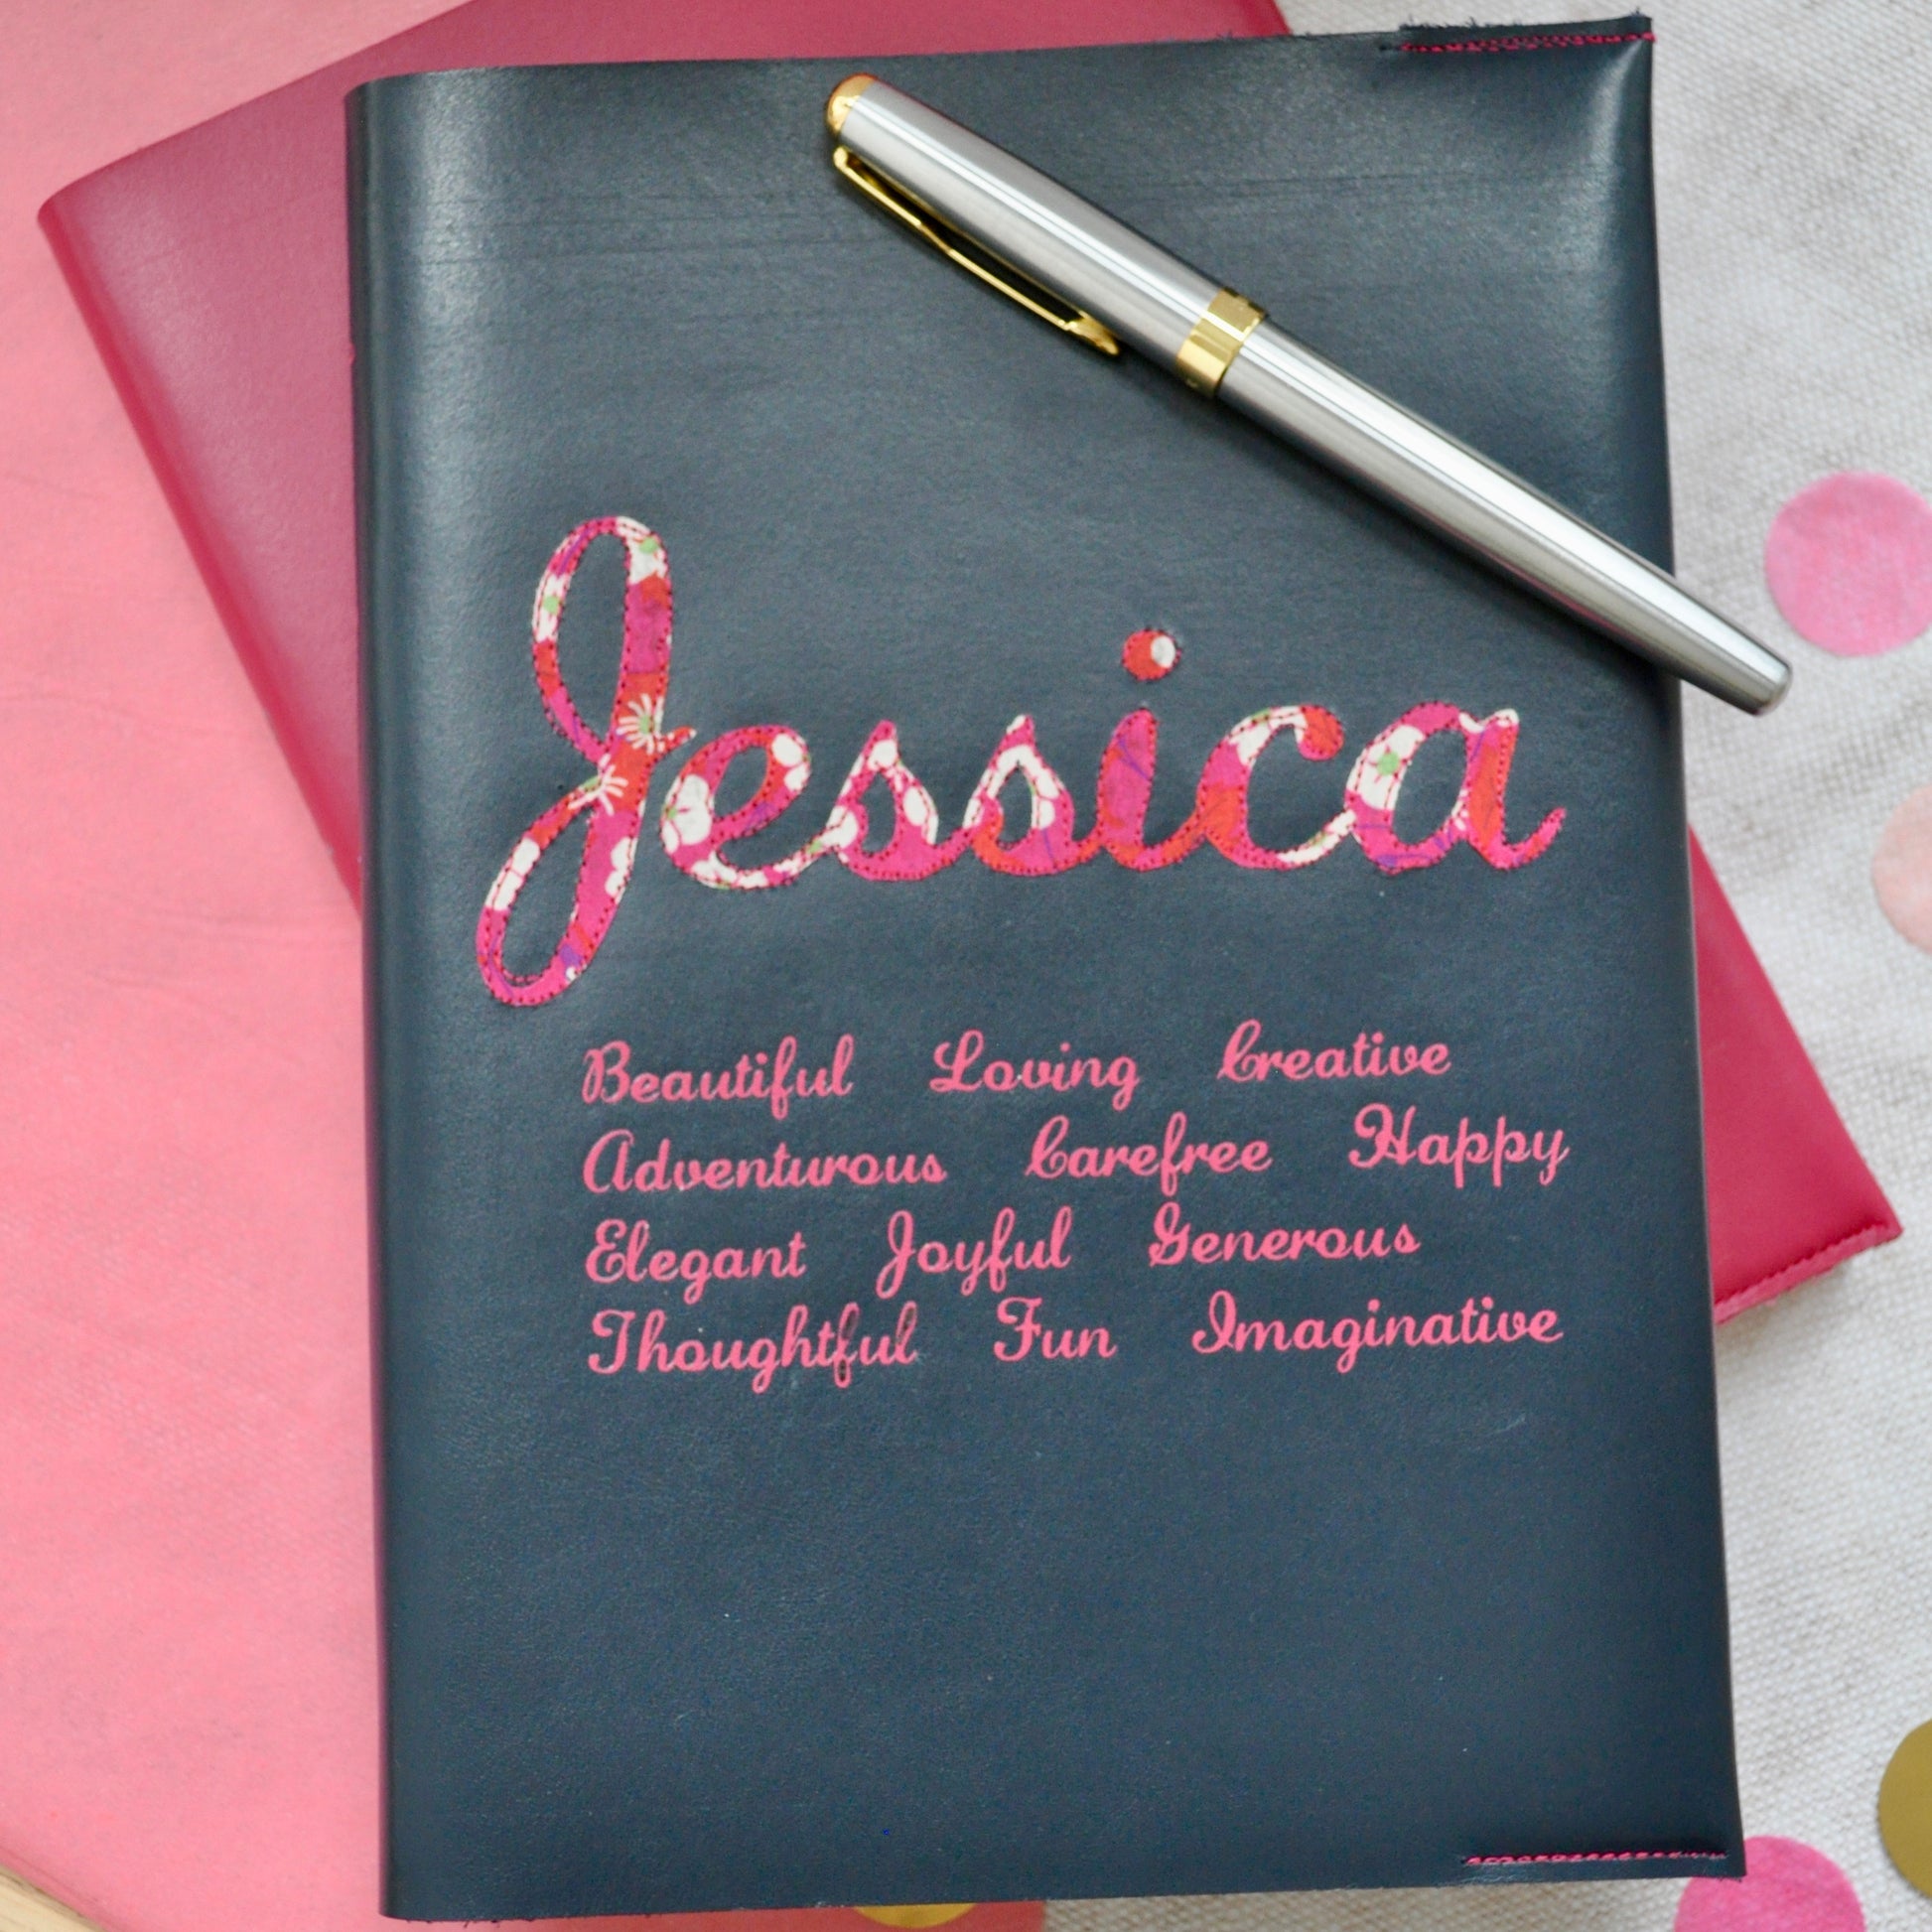 Jessica
Beautiful Loving Creative
Adventurous Carefree Happy
Elegant Joyful Generous
Thoughtful Fun Imaginative